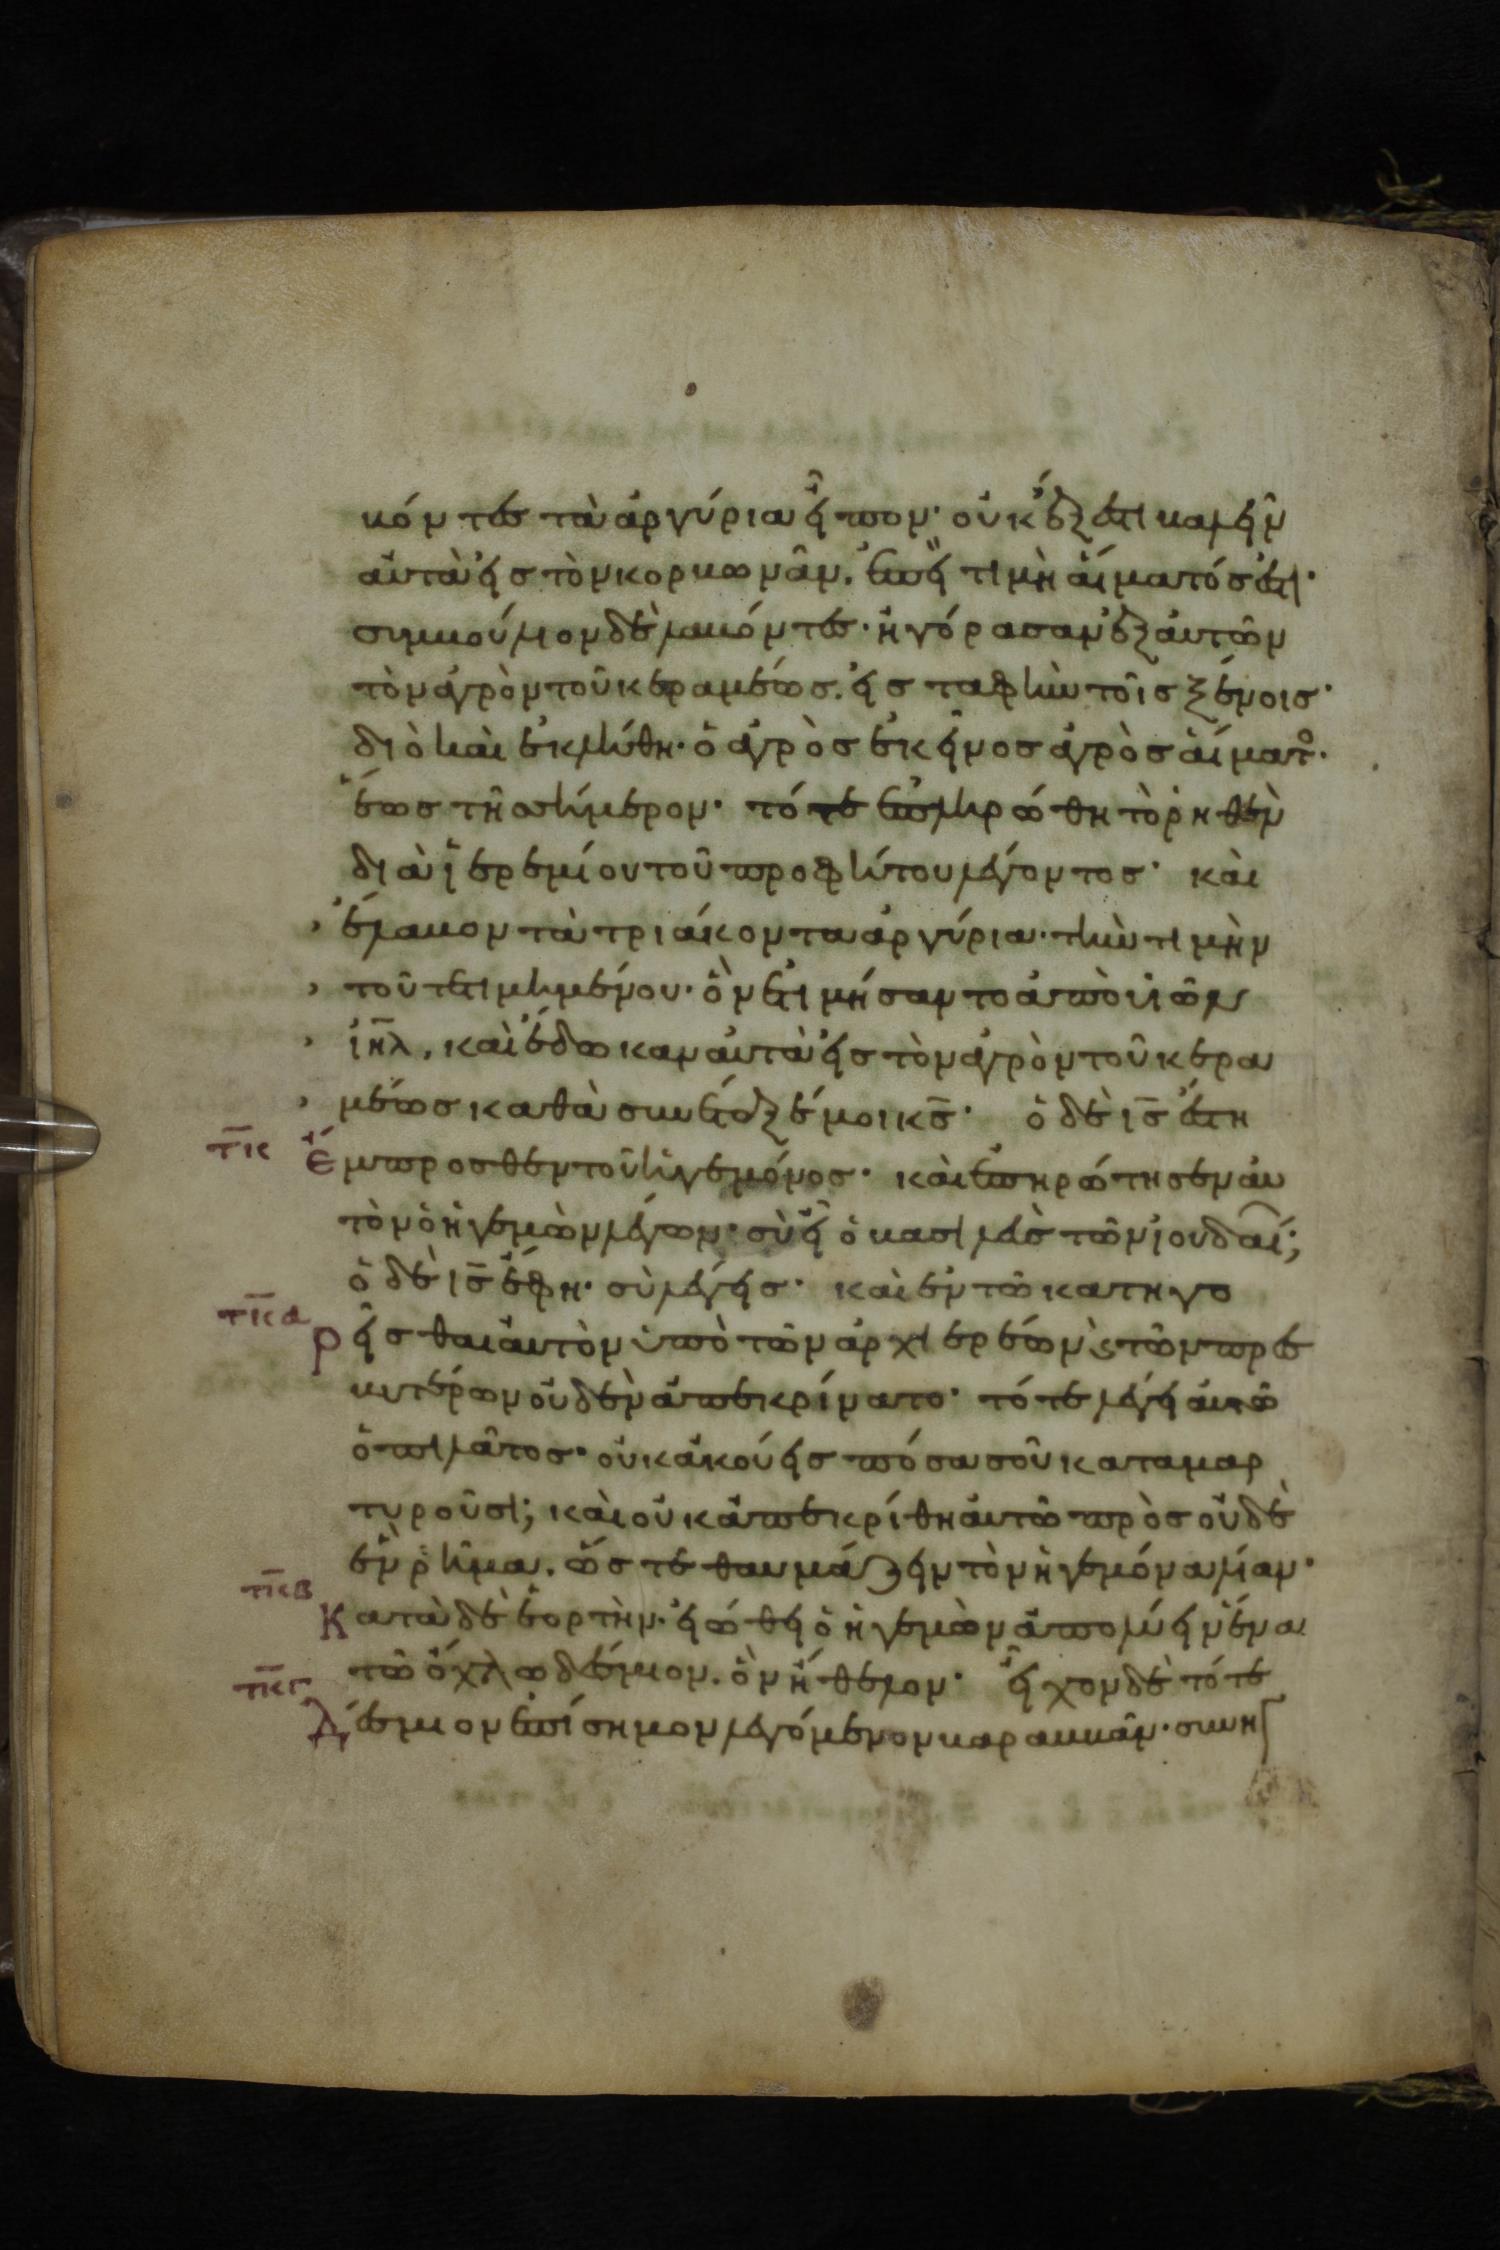 βόντες τὰ ἀργύρια εἶπον· οὐκ ἔξεστι βαλεῖν
αὐτὰ εἰς τὸν κορβωνᾶν. ἐπεὶ τιμὴ αἵματός ἐστι·
συμβούλιον δὲ λαβόντες· ἠγόρασαν ἐξ αὐτῶν
τὸν ἀγρὸν τοῦ κεραμέως. εἰς ταφὴν τοῖς ξένοις·
διὸ καὶ ἐκλήθη· ὁ ἀγρὸς ἐκεῖνος ἀγρὸς αἵματο·
ἕως τῆς σήμερον· τότε ἐπληρώθη τὸ ῥηθὲν
διὰ ἱερεμίου τοῦ προφήτου λέγοντος· καὶ
› ἔλαβον τὰ τριάκοντα ἀργύρια· τὴν τιμὴν
› τοῦ τετιμημένου· ὃν ἐτιμήσαντο ἀπὸ υἱῶν
› ιηλ, καὶ ἔδωκαν αὐτὰ εἰς τὸν ἀγρὸν τοῦ κερα
› μέως καθὰ συνέταξέ μοι κς· ὁ δὲ ις ἔστη
τκ Ἔμπροσθεν τοῦ ἡγεμόνος· καὶ ἐπηρώτησεν αὐ
τὸν ὁ ἡγεμὼν λέγων· σὺ εἶ ὁ βασιλεὺς τῶν ἰουδαί;
ὁ δὲ ις ἔφη· σὺ λέγεις· καὶ ἐν τῶ κατηγο
τκα ρεῖσθαι αὐτὸν ὑπὸ τῶν ἀρχιερέων ϗ τῶν πρεσ
βυτέρων οὐδὲν ἀπεκρίνατο· τότε λέγει αὐτῶ
ὁ πιλᾶτος· οὐκ ἀκούεις πόσα σοῦ καταμαρ
τυροῦσι; καὶ οὐκ ἀπεκρίθη αὐτῶ πρὸς οὐδὲ
ἓν ῥῆμα. ὥστε θαυμάζειν τὸν ἡγεμόνα λίαν·
τκβ Κατὰ δὲ ἑορτὴν· εἰώθει ὁ ἡγεμὼν ἀπολύειν ἕνα
τῶ ὄχλω δέσμιον. ὃν ἤθελον· εἶχον δὲ τότε
τκγ Δέσμιον ἐπίσημον λεγόμενον βαραββᾶν· συνη